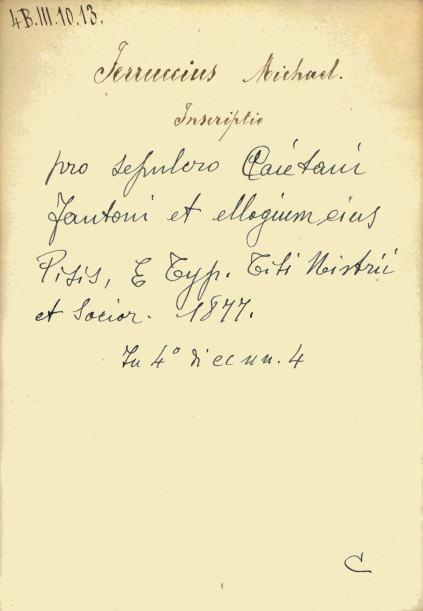 4B.III.10.13.
Ferruccius Michael.
Inscriptio
pro sepulcro Caietani
Fantoni et ellogium eius
Pisis, E Typ. Titi Nistrii
et Socior. 1877.
In 4° di cc nn. 4
C